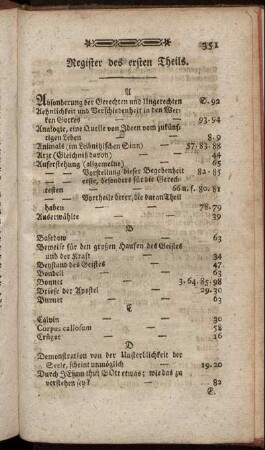 351
Register des ersten Theils.
A
Absonderung der Gerechten und Ungerechten S. 92
Aehnlichkeit und Verschiedenheit in den Wer-
ken Gottes — — 93-94
Analogie, eine Quelle von Ideen vom zukünf-
tigen Leben — — 8. 9
Animals (im Leibnitzischen Sinn) — 57. 83-88
Arzt (Gleichniß davon) — — 44
Auferstehung (allgemeine) — — 65
— — Vorstellung dieser Begebenheit 82-85
— — erste, besonders für die Gerech-
testen — — 66 u. f. 80. 81
— — Vortheile derer, die daran Theil
haben — — 78-79
Auserwählte — — 39
B
Basedow — — 63
Beweise für den großen Haufen des Geistes
und der Kraft — — 34
Beystand des Geistes — — 47
Bondeli — — 63
Bonnet — — 3. 64. 85. 98
Briefe der Apostel — — 29. 30
Burnet — — 63
C
Calvin — — 30
Corpus callosum — — 58
Crügot — — 16
D
Demonstration von der Unsterblichkeit der
Seele, scheint unmöglich — 19. 20
Durch JEsum thut GOtt etwas; wie das zu
verstehen sey? — — 82
E.